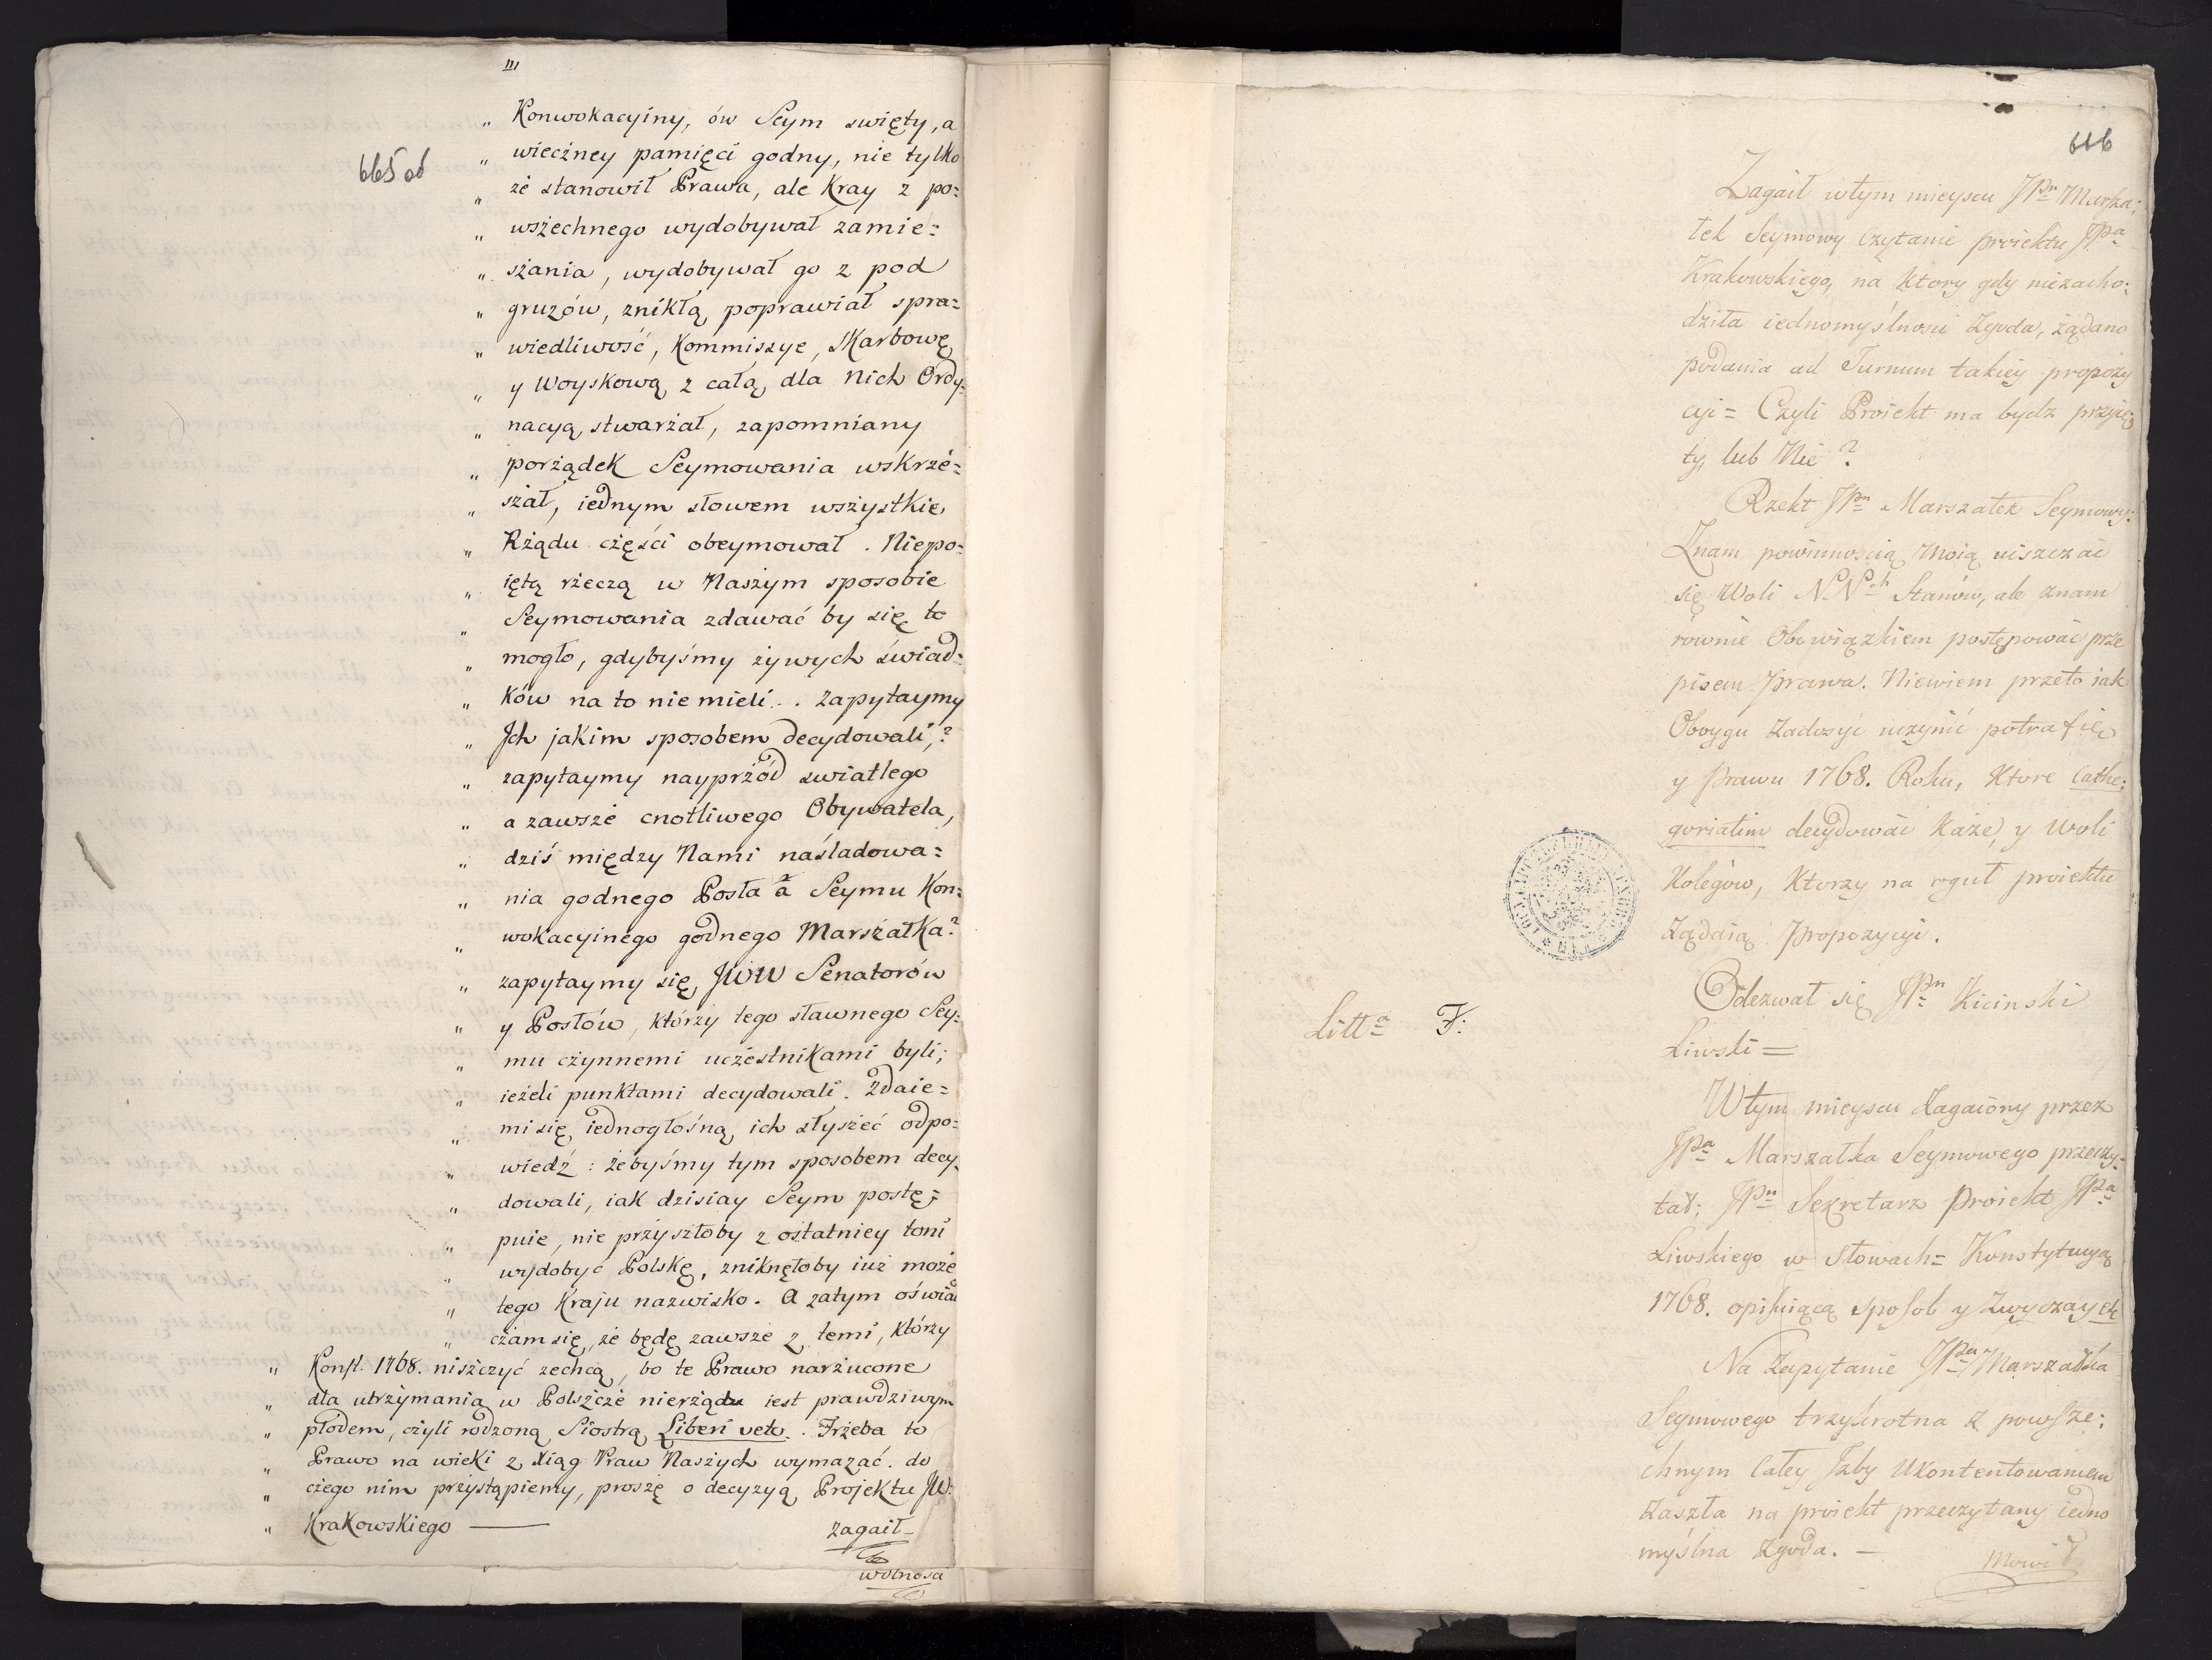 III
665 ob
„ Konwokacyiny, ów Seym swięty, a
„ wieczney pamięci godny, nie tylko
„ że stanowił Prawa, ale Kray z po=
„ wszechnego wydobywał zamie=
„ szania, wydobywał go z pod
„ gruzów, znikłą poprawiał spra=
„ wiedliwość, Kommiszye, Skarbowę
„ y Woyskową z całą dla Nich Ordy=
„ nacyą stwarzał, zapomniany
„ porządek Seymowania wskrze=
„ szał, iednym słowem wszystkie
„ Rządu części obeymował. Niepo=
„ iętą rzeczą w Naszym sposobie
„ Seymowania zdawać by się to
„ mogło, gdybyśmy żywych świad=
„ ków na to nie mieli... Zapytaymy
„ Jch jakim sposobem decydowali,?
„ zapytaymy nayprzód swiatlego
„ a zawsze cnotliwego Obywatela,
„ dziś między Nami naśladowa=
„ nia godnego Posła a Seymu Kon=
„ wokacyinego godnego Marszałka?
„ zapytaymy się JWW Senatorów
„ y Posłów, którzy tego sławnego Sey=
„ mu czynnemi uczestnikami byli;
„ ieżeli punktami decydowali. Zdaie=
„ mi się iednogłośną ich słyszeć odpo=
„ wiedź: żebyśmy tym sposobem decy=
„ dowali, iak dzisiay Seym postę=
„ puie, nie przyszłoby z ostatniey toni
„ wydobyć Polskę, zniknęłoby iuż może
„ tego Kraju nazwisko. A zatym oświad
„ czam się, że będę zawsze z temi, którzy
„ Konst. 1768. niszczyć zechcą, bo te Prawo narzucone
„ dla utrzymania w Polszcze nierządu iest prawdziwym
„ płodem, czyli rodzoną Siostrą Liberi veto. Trzeba to
„ Prawo na wieki z Xiąg Praw Naszych wymazać. do
„ czego nim przystąpiemy, proszę o decyzyą Projektu JW.
„ Krakowskiego — zagaił
wolnosci
666
Zagaił wtym mieyscu JPn Marsza=
łek Seymowy Czytanie proiektu JPa
Krakowskiego, na ktory gdy niezacho=
dziła iednomyślnosci Zgoda, żądano
podania ad Turnum takiey propozy
cyi = Czyli Proiekt ma bydz przyię
ty, lub Nie?
Rzekł JPn Marszałek Seymowy:
Znam powinnoscią Moią uiszczać
się Woli NNch Stanów, ale znam
równie Obowiązkiem postępować prze
pisem prawa. Niewiem przeto iak
Oboygu Zadosyć uczynić potrafię
y Prawu 1768. Roku, Ktore Cathe=
goriatim decydować Każe, y Woli
Kolegow, Ktorzy na ogut proiektu
Żądaią Propozycyi.
Odezwał się JPn Kicinski
Litta F:
Liwski =
W tym mieyscu Zagaiony przez
JPa Marszałka Seymowego przeczy=
tał: JPn Sekretarz Proiekt JPa
Liwskiego w Słowach = Konstytucyą
1768. opisuiącą Sposob y Zwyczay etc
Na Zapytanie JPa Marszałka
Seymowego trzykrotna z powsze=
chnym Całey Jzby Ukontentowaniem
Zaszła na proiekt przeczytany iedno
myślna Zgoda. — Mowił